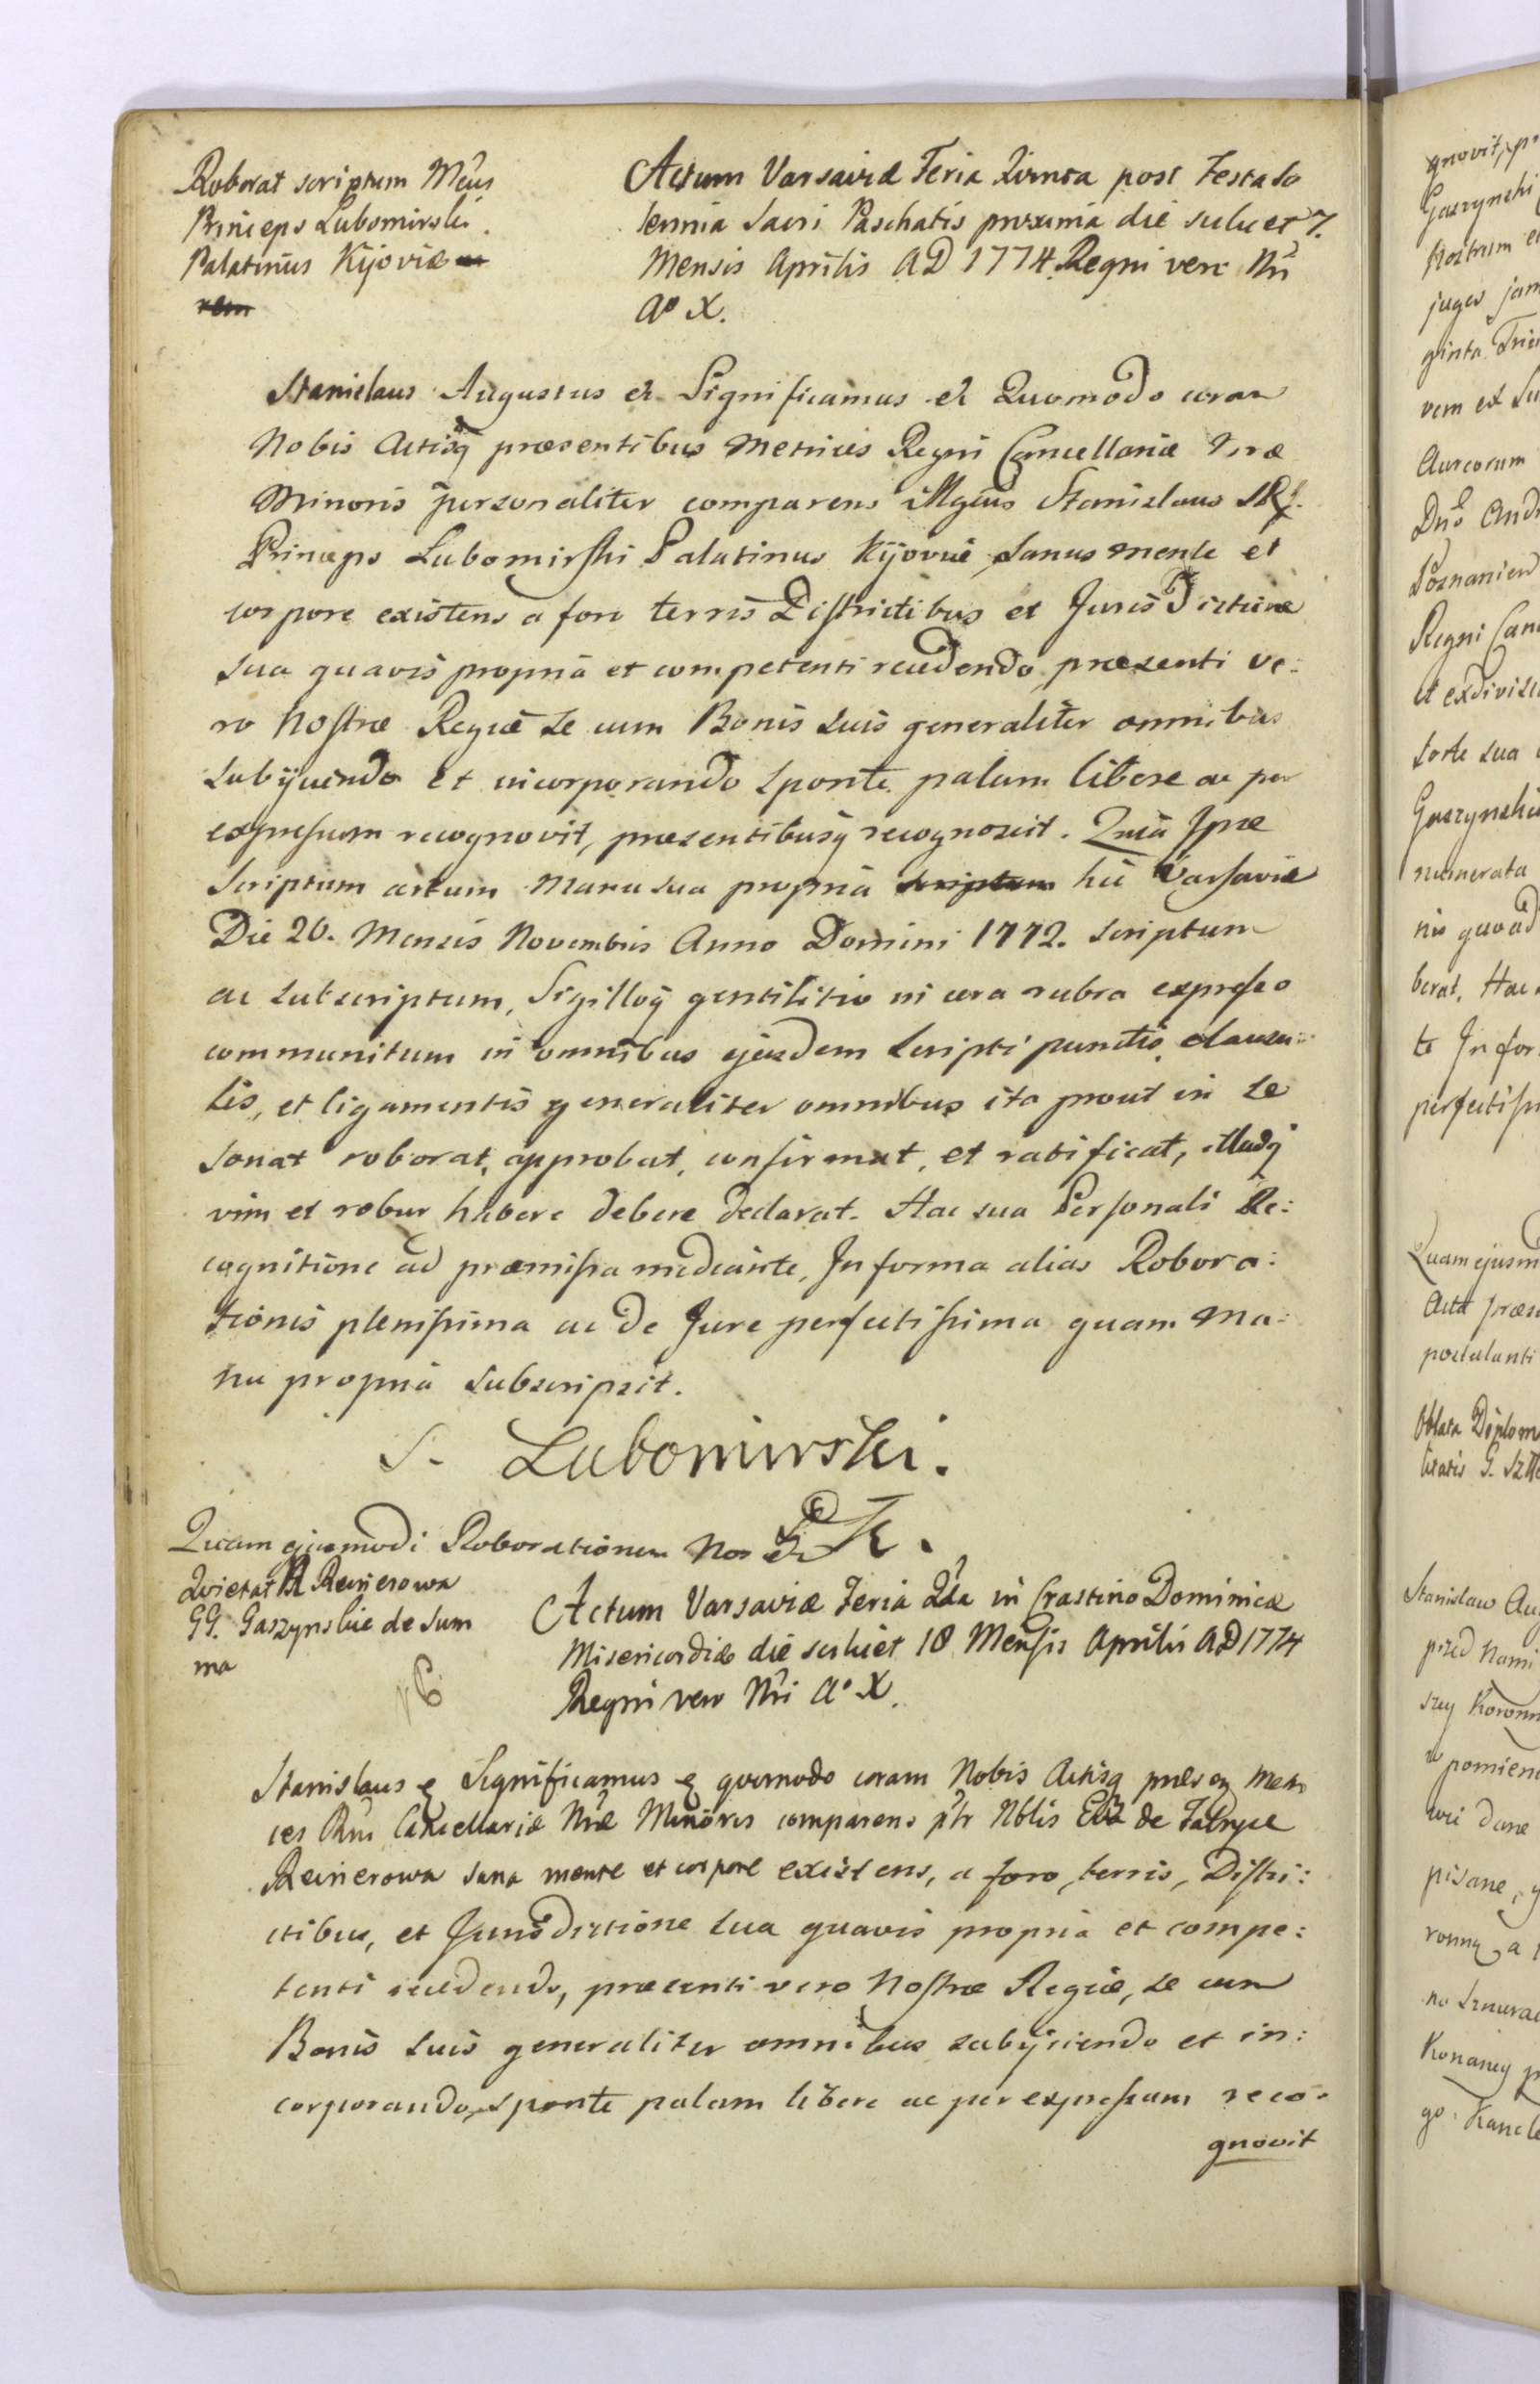 Roborat scriptum Mcus
Princeps Lubomirski
Palatinus Kijoviæ
Actum Varsaviæ Feria Quinta post Festa So
lennia Sacri Paschatis proxima die scilicet 7.
Mensis Aprilis AD 1774. Regni vero Nri
Aº X.
Stanislaus Augustus et Significamus et Quomodo coram
Nobis Actisq præsentibus Metrices Regni Cancellariæ Nræ
Minoris personaliter comparens Mgcus Stanislaus SRJ.
Princeps Lubomirski Palatinus Kijoviæ, sanus mente et
corpore existens a foro terris Districtibus et JurisDictione
sua quavis propria et competenti recedendo, præsenti ve:
ro Nostræ Regiæ se cum Bonis suis generaliter omnibus
subijciendo et incorporando sponte palam libere ac per
expressum recognovit, præsentibusq recognoscit. Quia Ipse
Scriptum certum manu sua propria scriptum hic Varsaviæ
Die 20. Mensis Novembris Anno Domini 1772. scriptum
ac subscriptum, Sigilloq gentilitio in cera rubra expresso
communitum in omnibus ejusdem scripti punctis, clausu:
lis, et ligamentis generaliter omnibus ita prout in se
sonat roborat, approbat, confirmat, et ratificat, illudq
vim et robur habere debere declarat. Hac sua Personali Re:
cognitione ad præmissa mediante, In forma alias Robora:
tionis plenissima ac de Jure perfectissima quam ma:
nu propria subscripsit.
S. Lubomirski.
Quam ejusmodi Roborationem Nos
Quietat Reinerowa
GG. Gaszynskie de Sum
ma
Actum Varsaviæ Feria 2da in Crastino Dominicæ
Misericordiæ die scilicet 18 Mensis Aprilis AD 1774
Regni vero Nri Aº X.
Stanislaus et Significamus et quomodo coram Nobis Actisq præs Metri
ces Rni Cancellariæ Nræ Minoris comparens pltr Nblis Elz de Fabryce
Reinerowa sana mente et corpore existens, a foro, terris, Distri:
ctibus, et Jurisdictione sua quavis propria et compe:
tenti recedendo, præsenti vero Nostræ Regiæ, se cum
Bonis suis generaliter omnibus subijciendo et in:
corporando, sponte palam libere ac per expressum reco:
gnovit
gnovit,
Gaszynski
nostrum
juges jam
ginta
vem et
Aureorum
Dno And
Posnanien
Regni Can
et exdivis
sorte sua
Gaszynskie
numerata
nis quoad
berat, Hac
te In for
perfectissi
Quam ejusm
Acta præs
postulanti
Oblata Diplom
litatis G.
Stanislaw Au
przed Nami
szey Koronn
pomien
wici dane
pisane,
ronną a
no
Konaney p
go Kancle